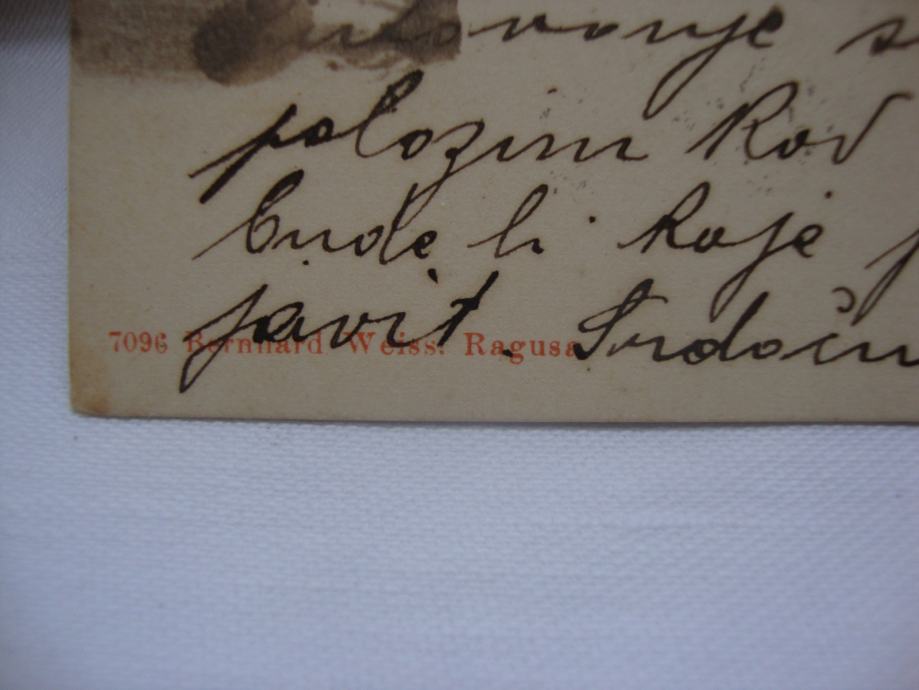 polozim kod
bude li koje
javit. Srdačn
7096 Bernhard Weiss. Ragusa